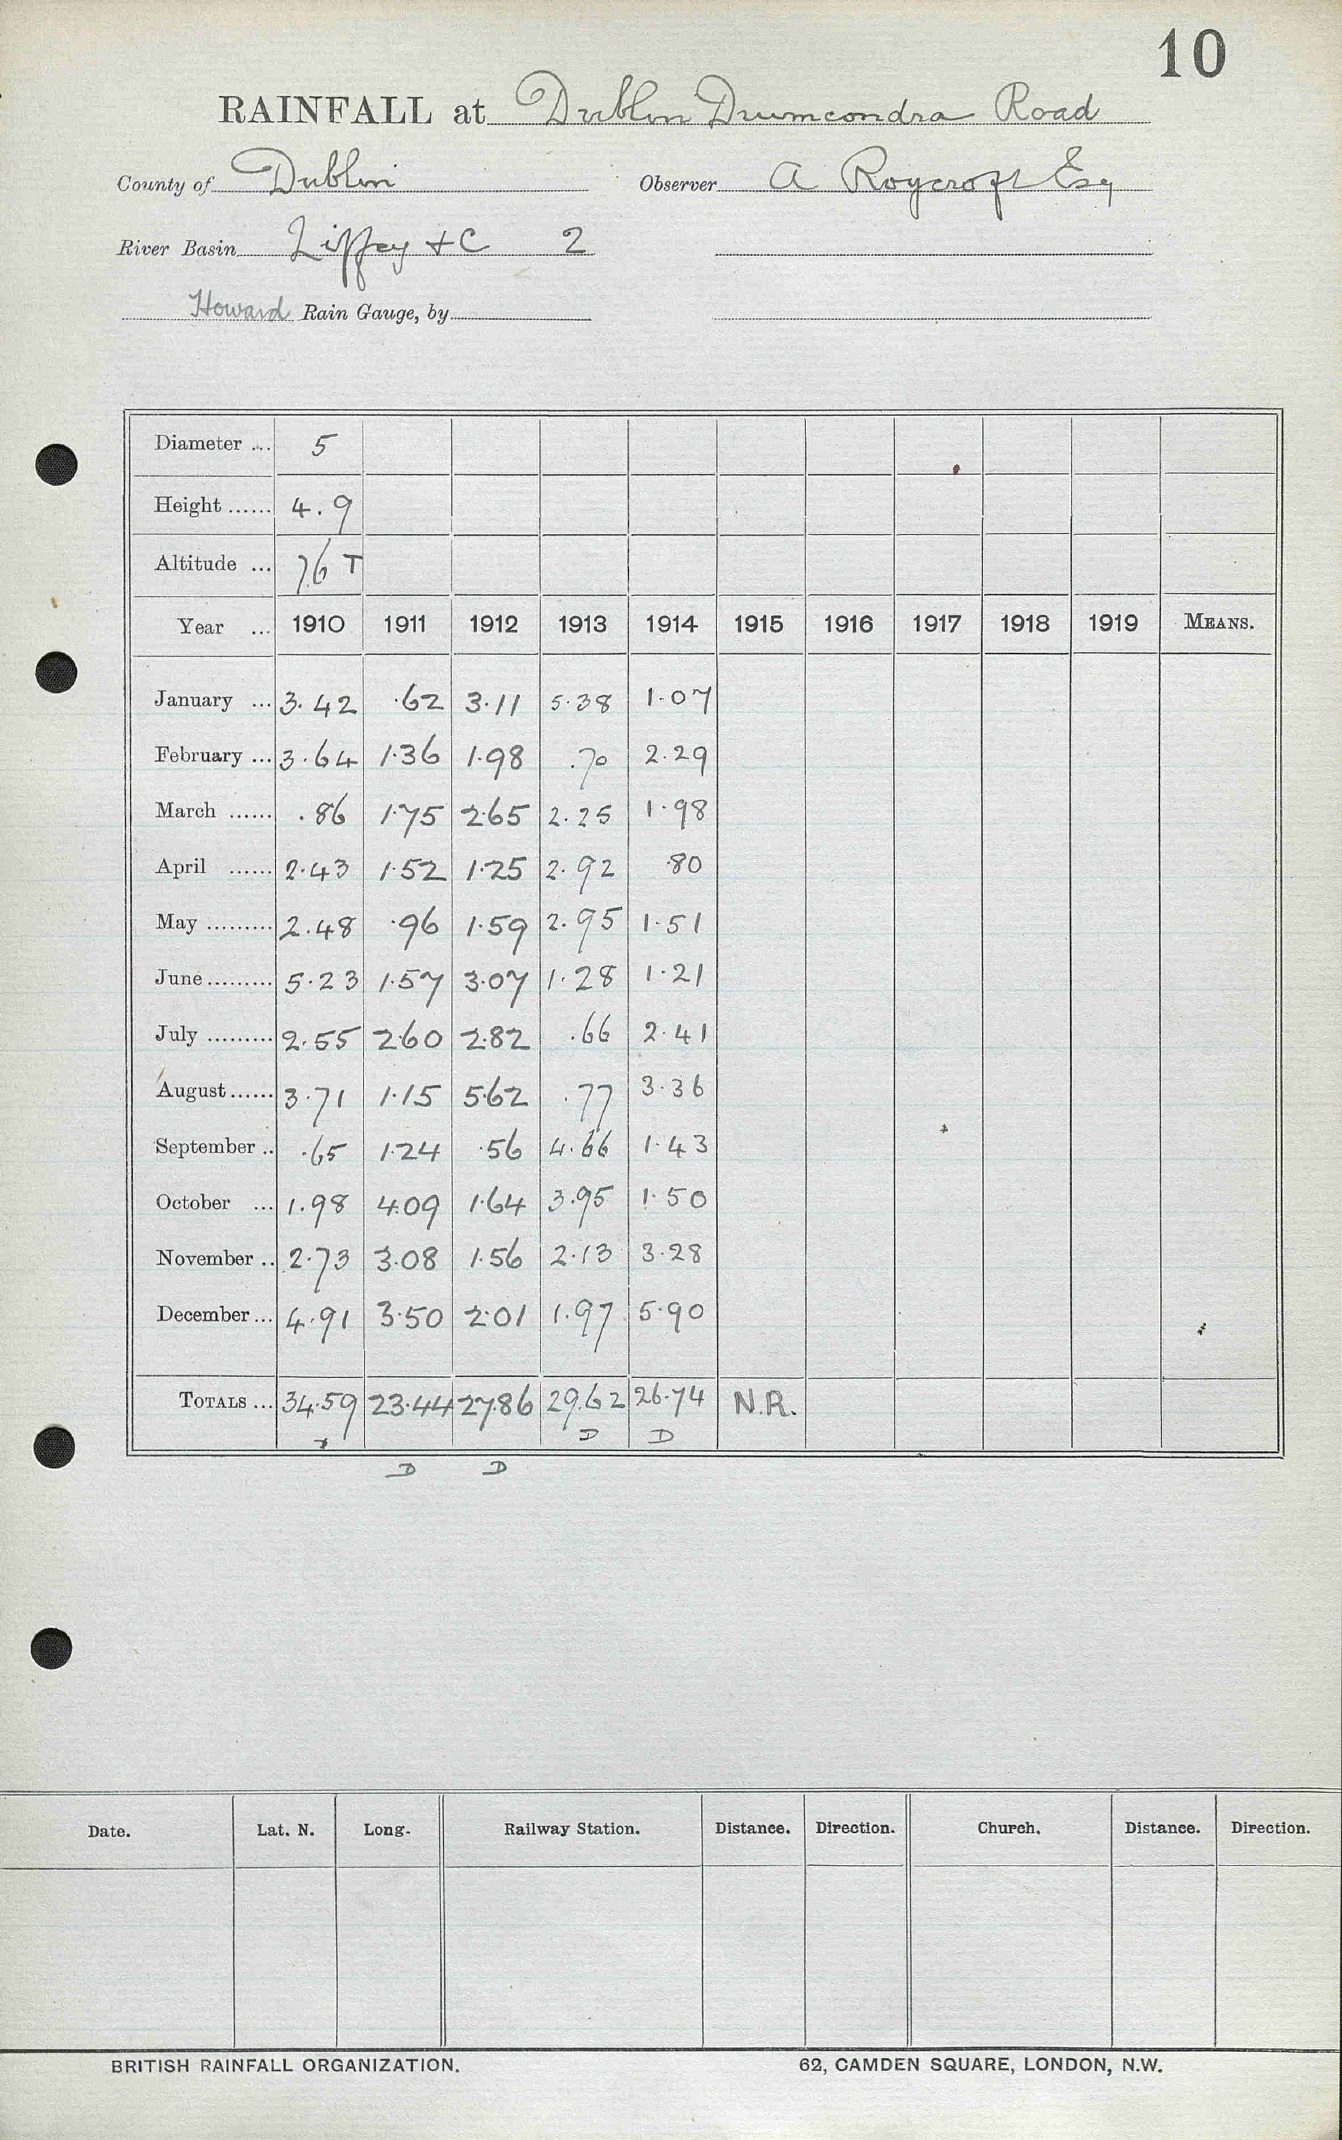 10
RAINFALL at Dublin Drumcondra Road
County of Dublin Observer A Roycroft Esq
River Basin Liffey +C 2
Howard Rain Gauge, by
Diameter ... 5
Height ...... 4.9
Altitude ... 76 T
Year ... 1910 1911 1912 1913 1914 1915 1916 1917 1918 1919 MEANS.
January ... 3.42 .62 3.11 5.38 1.07
February ... 3.64 1.36 1.98 .70 2.29
March ...... .86 1.75 2.65 2.25 1.98
April ...... 2.43 1.52 1.25 2.92 .80
May ......... 2.48 .96 1.59 2.95 1.51
June ......... 5.23 1.57 3.07 1.28 1.21
July ......... 2.55 2.60 2.82 .66 2.41
August ...... 3.71 1.15 5.62 .77 3.36
September .. .65 1.24 .56 4.66 1.43
October ... 1.98 4.09 1.64 3.95 1.50
November .. 2.73 3.08 1.56 2.13 3.28
December ... 4.91 3.50 2.01 1.97 5.90
TOTALS ... 34.59 23.44 27.86 29.62 26.74 N.R.
D D
D D
Date. Lat. N. Long. Railway Station. Distance. Direction. Church. Distance. Direction.
BRITISH RAINFALL ORGANIZATION. 62, CAMDEN SQUARE, LONDON, N.W.